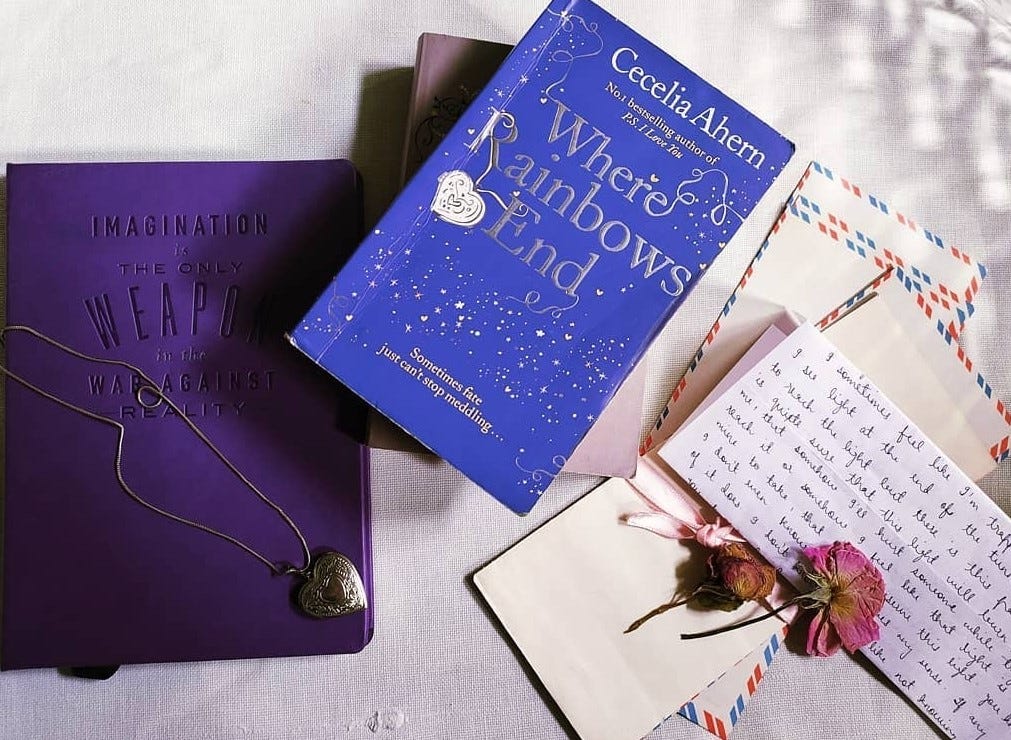 IMAGINATION
is
THE ONLY
WEAPON
in the
WAR AGAINST
REALITY
Cecelia Ahern
No.1 bestselling author of
P.S. I Love You
Where
Rainbows
End
Sometimes fate
just can't stop meddling...
I sometimes feel like I'm
I see light at the end of the
to reach the light but there is this
is quite sure that this light will burn
me, that somehow I'll hurt someone while
reach it or somehow I feel like that light is
mine to take, that I don't deserve this light. You
I don't even know any sense. If any
of it does I don't like not knowing